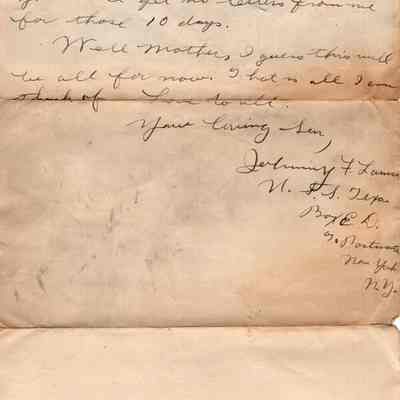 get no letters from me
for those 10 days.
Well Mother, I guess this will
be all for now. That is all I can
think of. Love to all.
Your loving Son,
Johnny F.
U. S. S. Texas
Box E D.
% Postmaster
New York
N.Y.